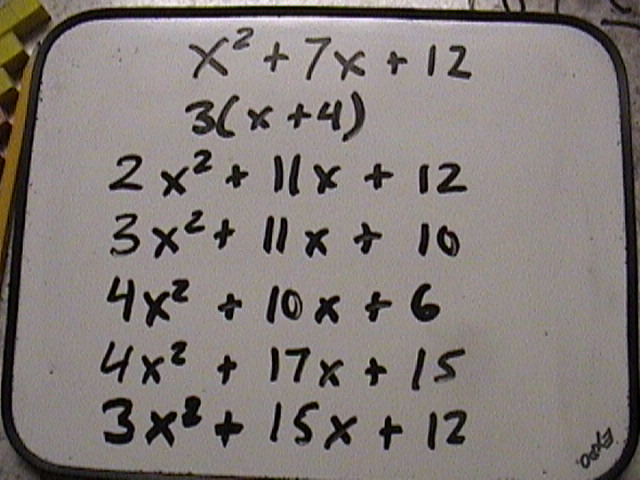 x² + 7x + 12
3(x + 4)
2x² + 11x + 12
3x² + 11x + 10
4x² + 10x + 6
4x² + 17x + 15
3x² + 15x + 12
EXPO